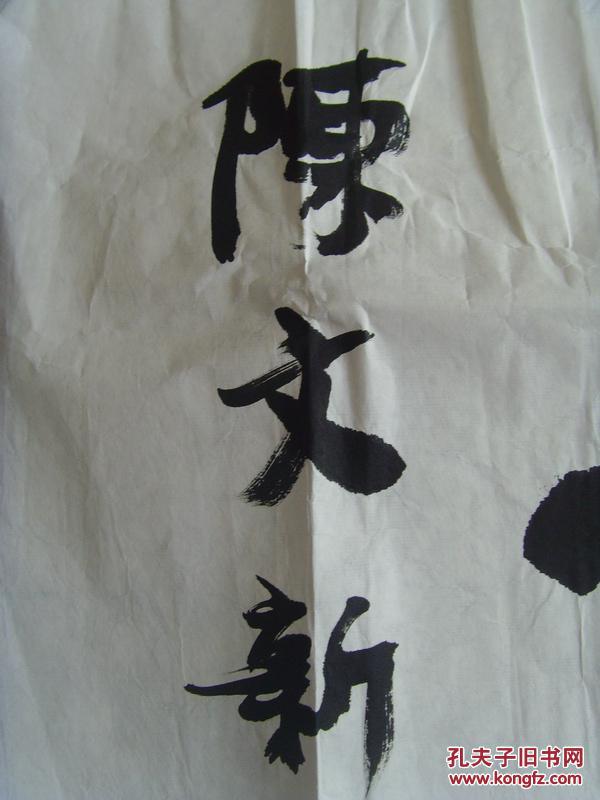 陳文新
孔夫子旧书网
www.kongfz.com